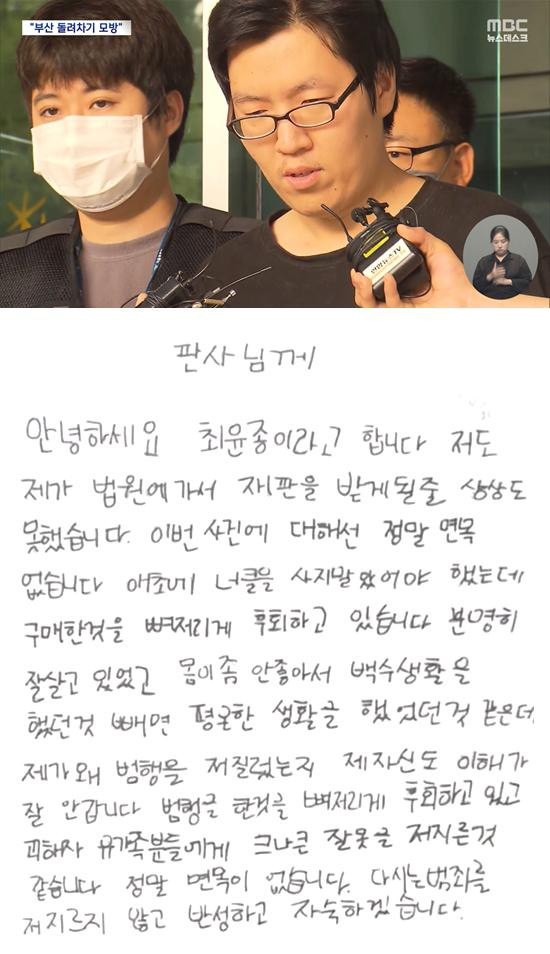 "부산 돌려차기 모방"
MBC
뉴스데스크
연합뉴스TV
판사님께
안녕하세요 최윤종이라고 합니다 저도
제가 법원에가서 재판을 받게될줄 상상도
못했습니다. 이번 사건에 대해선 정말 면목
없습니다 애초에 너클을 사지말았어야 했는데
구매한것을 뼈저리게 후회하고 있습니다 분명히
잘살고 있었고 몸이좀 안좋아서 백수생활을
했던것 빼면 평온한 생활을 했었던것 같은데
제가왜 범행을 저질렀는지 제자신도 이해가
잘 안갑니다 범행을 한것을 뼈저리게 후회하고 있고
피해자 유가족분들에게 크나큰 잘못을 저지른것
같습니다 정말 면목이 없습니다. 다시는범죄를
저지르지 않고 반성하고 자숙하겠습니다.